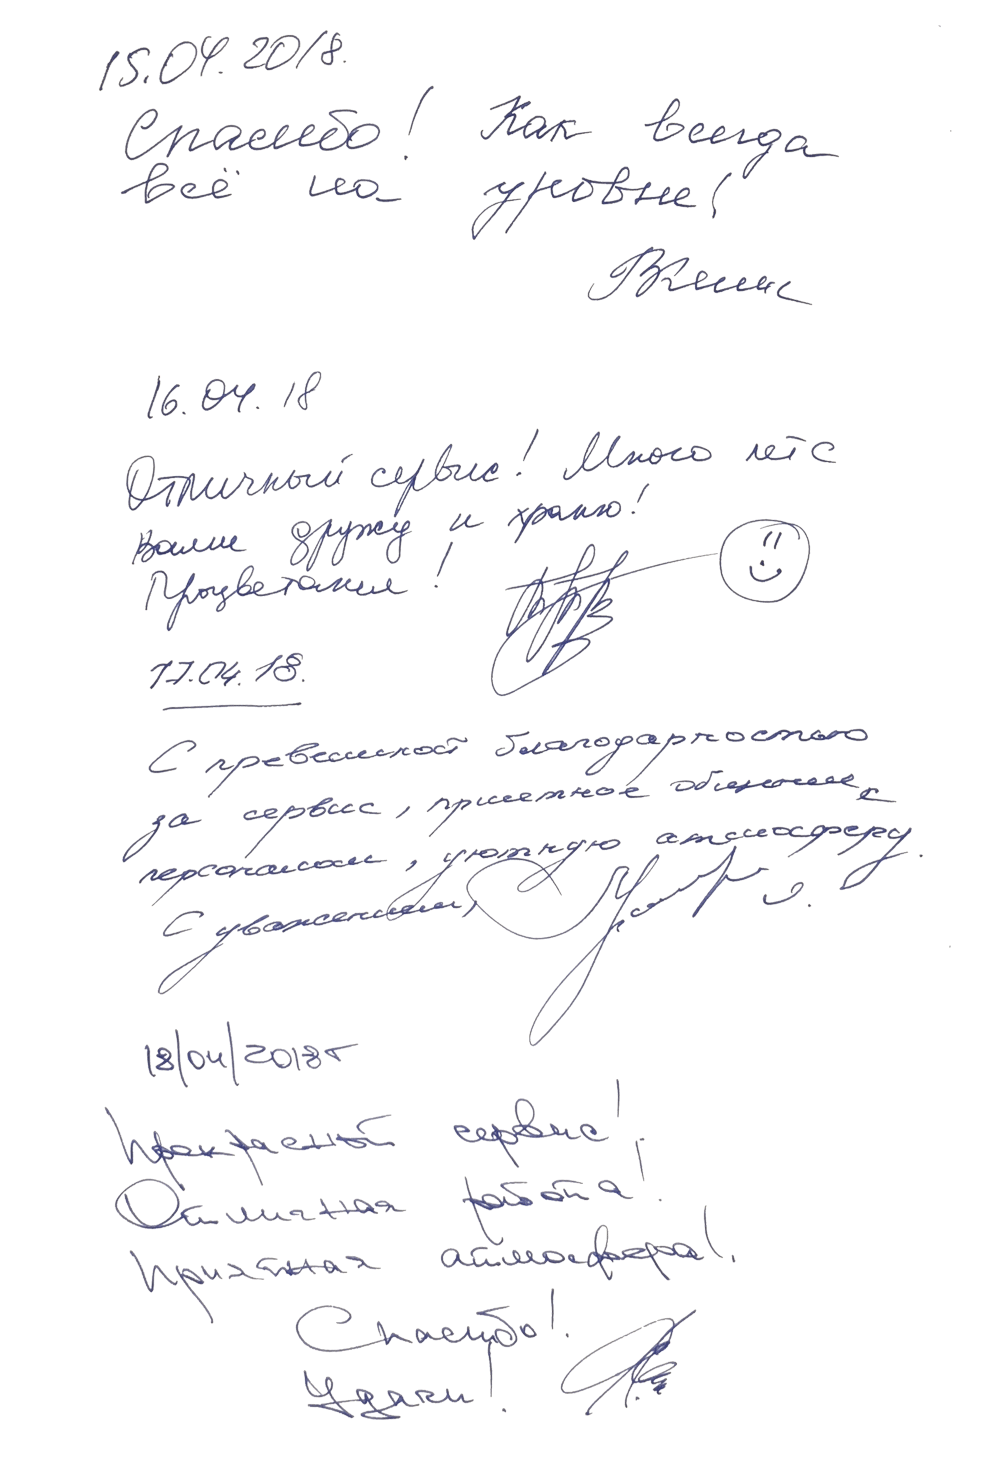 15.04.2018.
Спасибо! Как всегда
всё на уровне!
16.04.18
Отличный сервис! Много лет с
Вами дружу и храню!
Процветания!
17.04.18.
С превеликой благодарностью
за сервис, приятное общение с
персоналом, уютную атмосферу.
С уважением,
18/04/2018г
Прекрасный сервис!
Отличная работа!
Приятная атмосфера!
Спасибо!
Удачи!